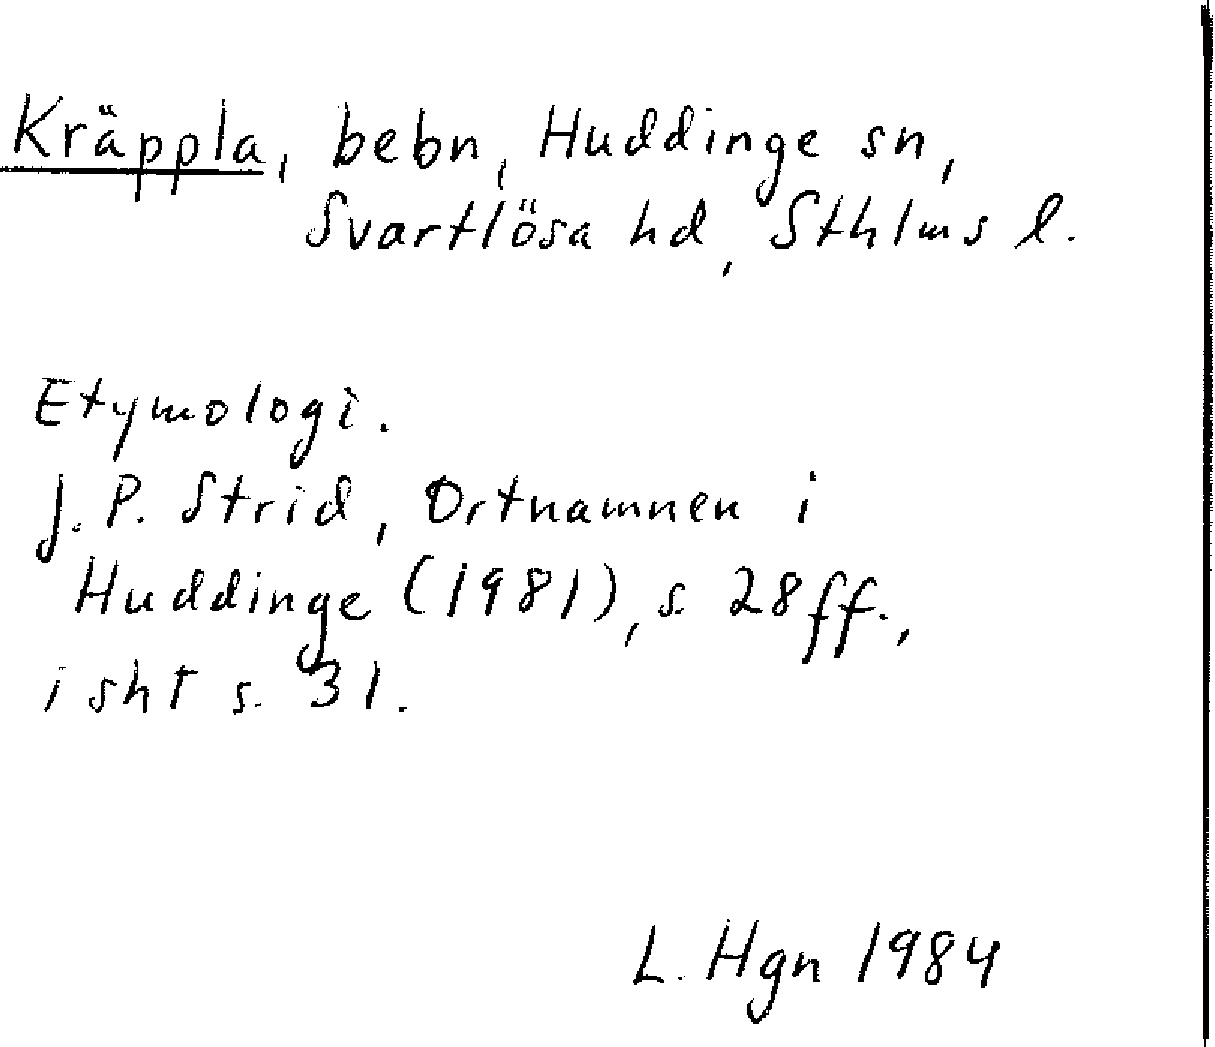 Kräppla, bebn, Huddinge sn,
Svartlösa hd, Sthlms l.
Etymologi.
J. P. Strid, Ortnamnen i
Huddinge (1981), s. 28ff.,
isht s. 31.
L. Hgn 1984